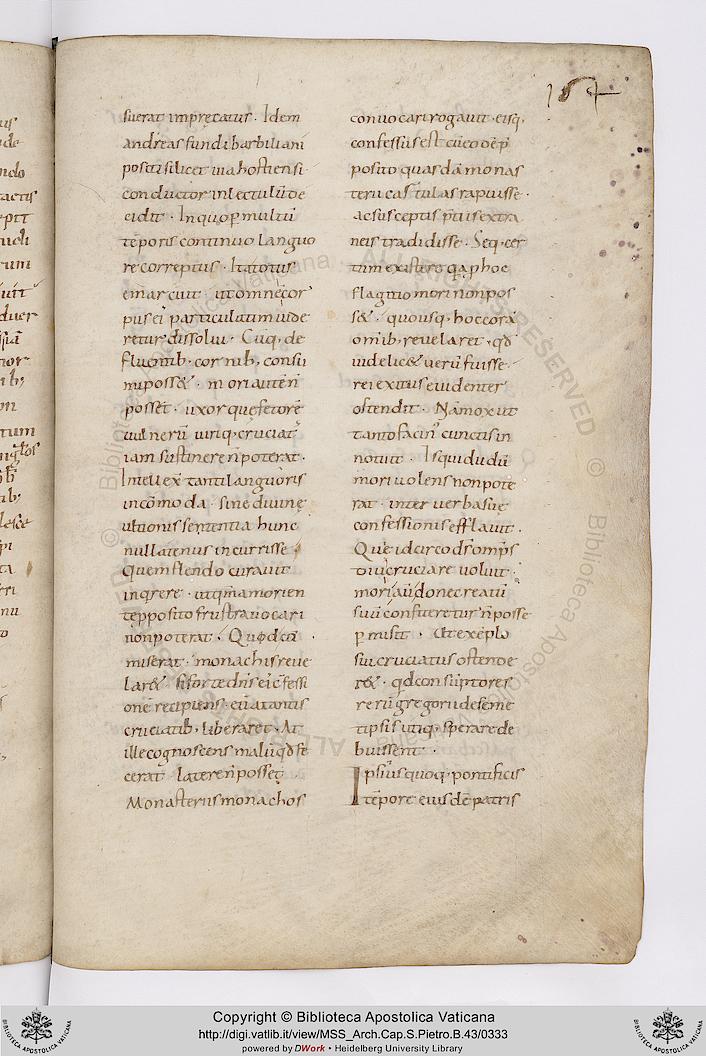 154
fuerat imprecatus. Idem
andreas fundi barbiliani
positi silicet uia hostiensi
conductor in lectulū de
cidit. In quo ꝑ multū
tēporis continuo languo
re correptus. Ita totus
emarcuit ut omne cor
pus ei particulatim uide
retur dissolui. Cūq, de
fluentib, cornib, consu
mi poss&. mori autē ñ
posset. uxor que fetorē
uulnerū uiriq, cruciatꝰ
iam sustinere ñ poterat.
Intellex tanti languoris
incōmoda. sine diuinę
ultionis sententia hunc
nullatenus incurrisse
Quem flendo curauit
inqrere. utqm a morien
te ꝓposito frustra uocari
non poterat. Quod cō
miserat. monachis reue
lar&. si forte dñs ei cfessi
onē recipiens. eū a tantis
cruciatib, liberaret. At
ille cognoscens malū qđ fe
cerat latere ñ posset
Monasteriis monachos
conuocari rogauit. eisq,
confessus est cū eodē p̄
posito quasdā monas
terii cartulas rapuisse.
ac susceptis p̄tiis extra
neis tradidisse. Seq, cer
tum existere qa ꝓ hoc
flagitio mori non pos
s&. quousq, hoc corā
omib, reuelaret. qđ
uidelic& uerū fuisse.
rei exitus euidenter
ostendit. Nā mox ut
tantō facin cunctis in
notuit. Is qui dudū
mori uolens non pote
rat. inter uerba suę
confessionis efflauit.
Quē idcirco dš omps
diu cruciare uoluit.
mori aū donec reatū
suū confiteretur ñ posse
ꝑmisit. Ut exēplo
sui cruciatus ostende
r&. qđ consūptores
rerū gregorii de seme
tipsis utiq, sperare de
buissent.
Ipsius quoq, pontificis
tēpore eiusdē patris
Copyright © Biblioteca Apostolica Vaticana
http://digi.vatlib.it/view/MSS_Arch.Cap.S.Pietro.B.43/0333
powered by DWork • Heidelberg University Library